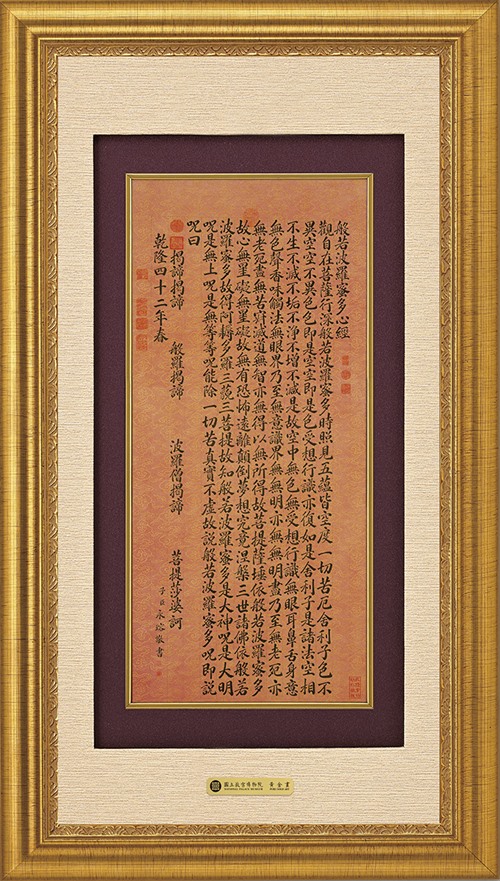 般若波羅蜜多心經
觀自在菩薩行深般若波羅蜜多時照見五蘊皆空度一切苦厄舍利子色不
異空空不異色色即是空空即是色受想行識亦復如是舍利子是諸法空相
不生不滅不垢不淨不增不減是故空中無色無受想行識無眼耳鼻舌身意
無色聲香味觸法無眼界乃至無意識界無無明亦無無明盡乃至無老死亦
無老死盡無苦集滅道無智亦無得以無所得故菩提薩埵依般若波羅蜜多
故心無罣礙無罣礙故無有恐怖遠離顛倒夢想究竟涅槃三世諸佛依般若
波羅蜜多故得阿耨多羅三藐三菩提故知般若波羅蜜多是大神呪是大明
呪是無上呪是無等等呪能除一切苦真實不虛故說般若波羅蜜多呪即說
呪曰
揭諦揭諦 般羅揭諦 波羅僧揭諦 菩提莎婆訶
乾隆四十二年春
子臣永瑢敬書
國立故宮博物院 黃金畫
NATIONAL PALACE MUSEUM